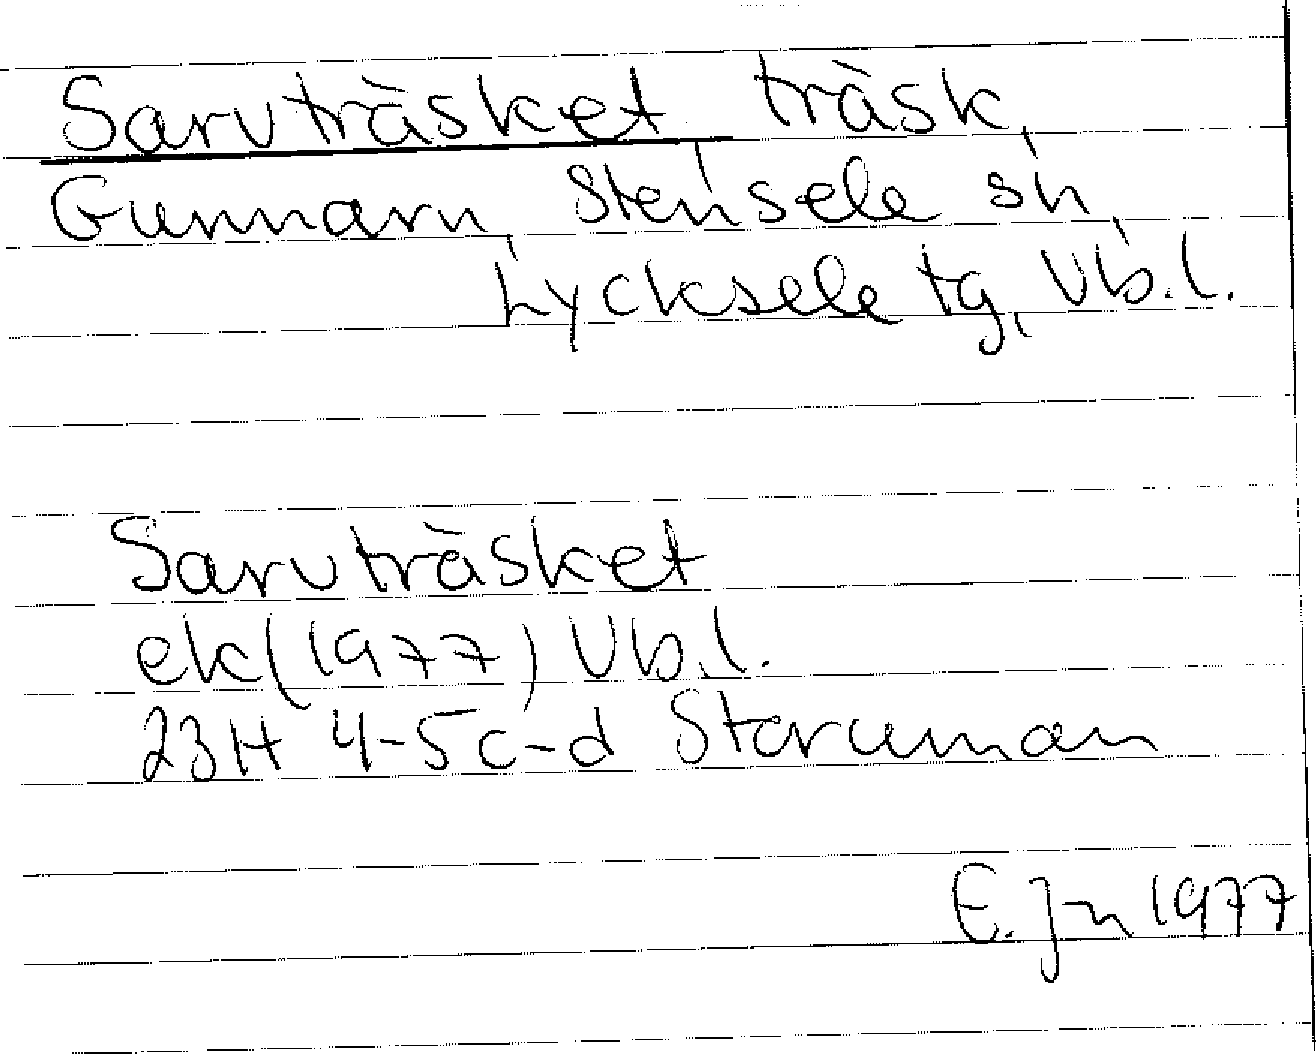 Sarvträsket träsk,
Gunnarn, Stensele sn,
Lycksele tg, Vb.l.
Sarvträsket
ek (1977) Vb.l.
23H 4-5c-d Storuman
E. Jn 1977